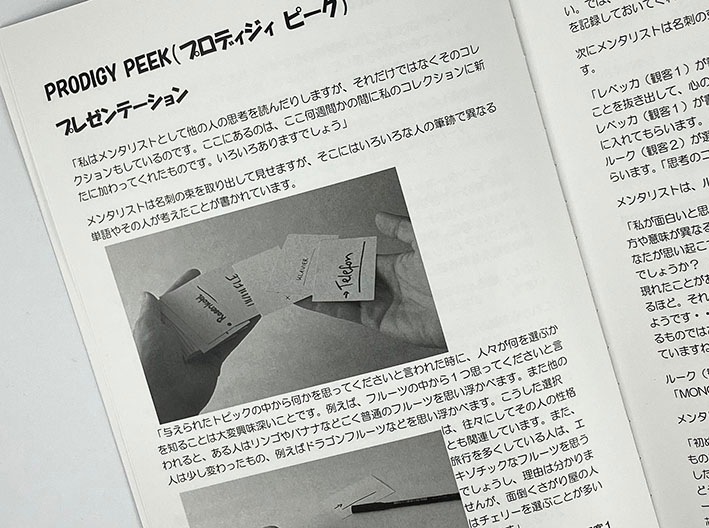 PRODIGY PEEK(プロディジィ ピーク)
プレゼンテーション
「私はメンタリストとして他の人の思考を読んだりしますが、それだけではなくそのコレ
クションもしているのです。ここにあるのは、ここ何週間かの間に私のコレクションに新
たに加わってくれたものです。いろいろありますでしょう」
メンタリストは名刺の束を取り出して見せますが、そこにはいろいろな人の筆跡で異なる
単語やその人が考えたことが書かれています。
KLAVIER
→ Telefon
「与えられたトピックの中から何かを思ってくださいと言われた時に、人々が何を選ぶか
を知ることは大変興味深いことです。例えば、フルーツの中から1つ思ってくださいと言
われると、ある人はリンゴやバナナなどごく普通のフルーツを思い浮かべます。また他の
人は少し変わったもの、例えばドラゴンフルーツなどを思い浮かべます。こうした選択
は、往々にしてその人の性格
とも関連しています。また、
旅行を多くしている人は、エ
キゾチックなフルーツを思う
でしょうし、理由は分かりま
せんが、面倒くさがり屋の人
はチェリーを選ぶことが多い
い。では、
を記録しておいてくれ
次にメンタリストは名刺の束
す。
「レベッカ(観客1)が
ことを抜き出して、心の
レベッカ(観客1)が書
に入れてもらいます。
ルーク(観客2)が選
らいます。「思考のコ
メンタリストは、ル
「私が面白いと思
方や意味が異なる
なたが思い起こ
でしょうか?
現れたことがあ
るほど。それ
ようです・・
るものではあ
ていますね
ルーク(
「MONO
メンタ
「初め
もの
した